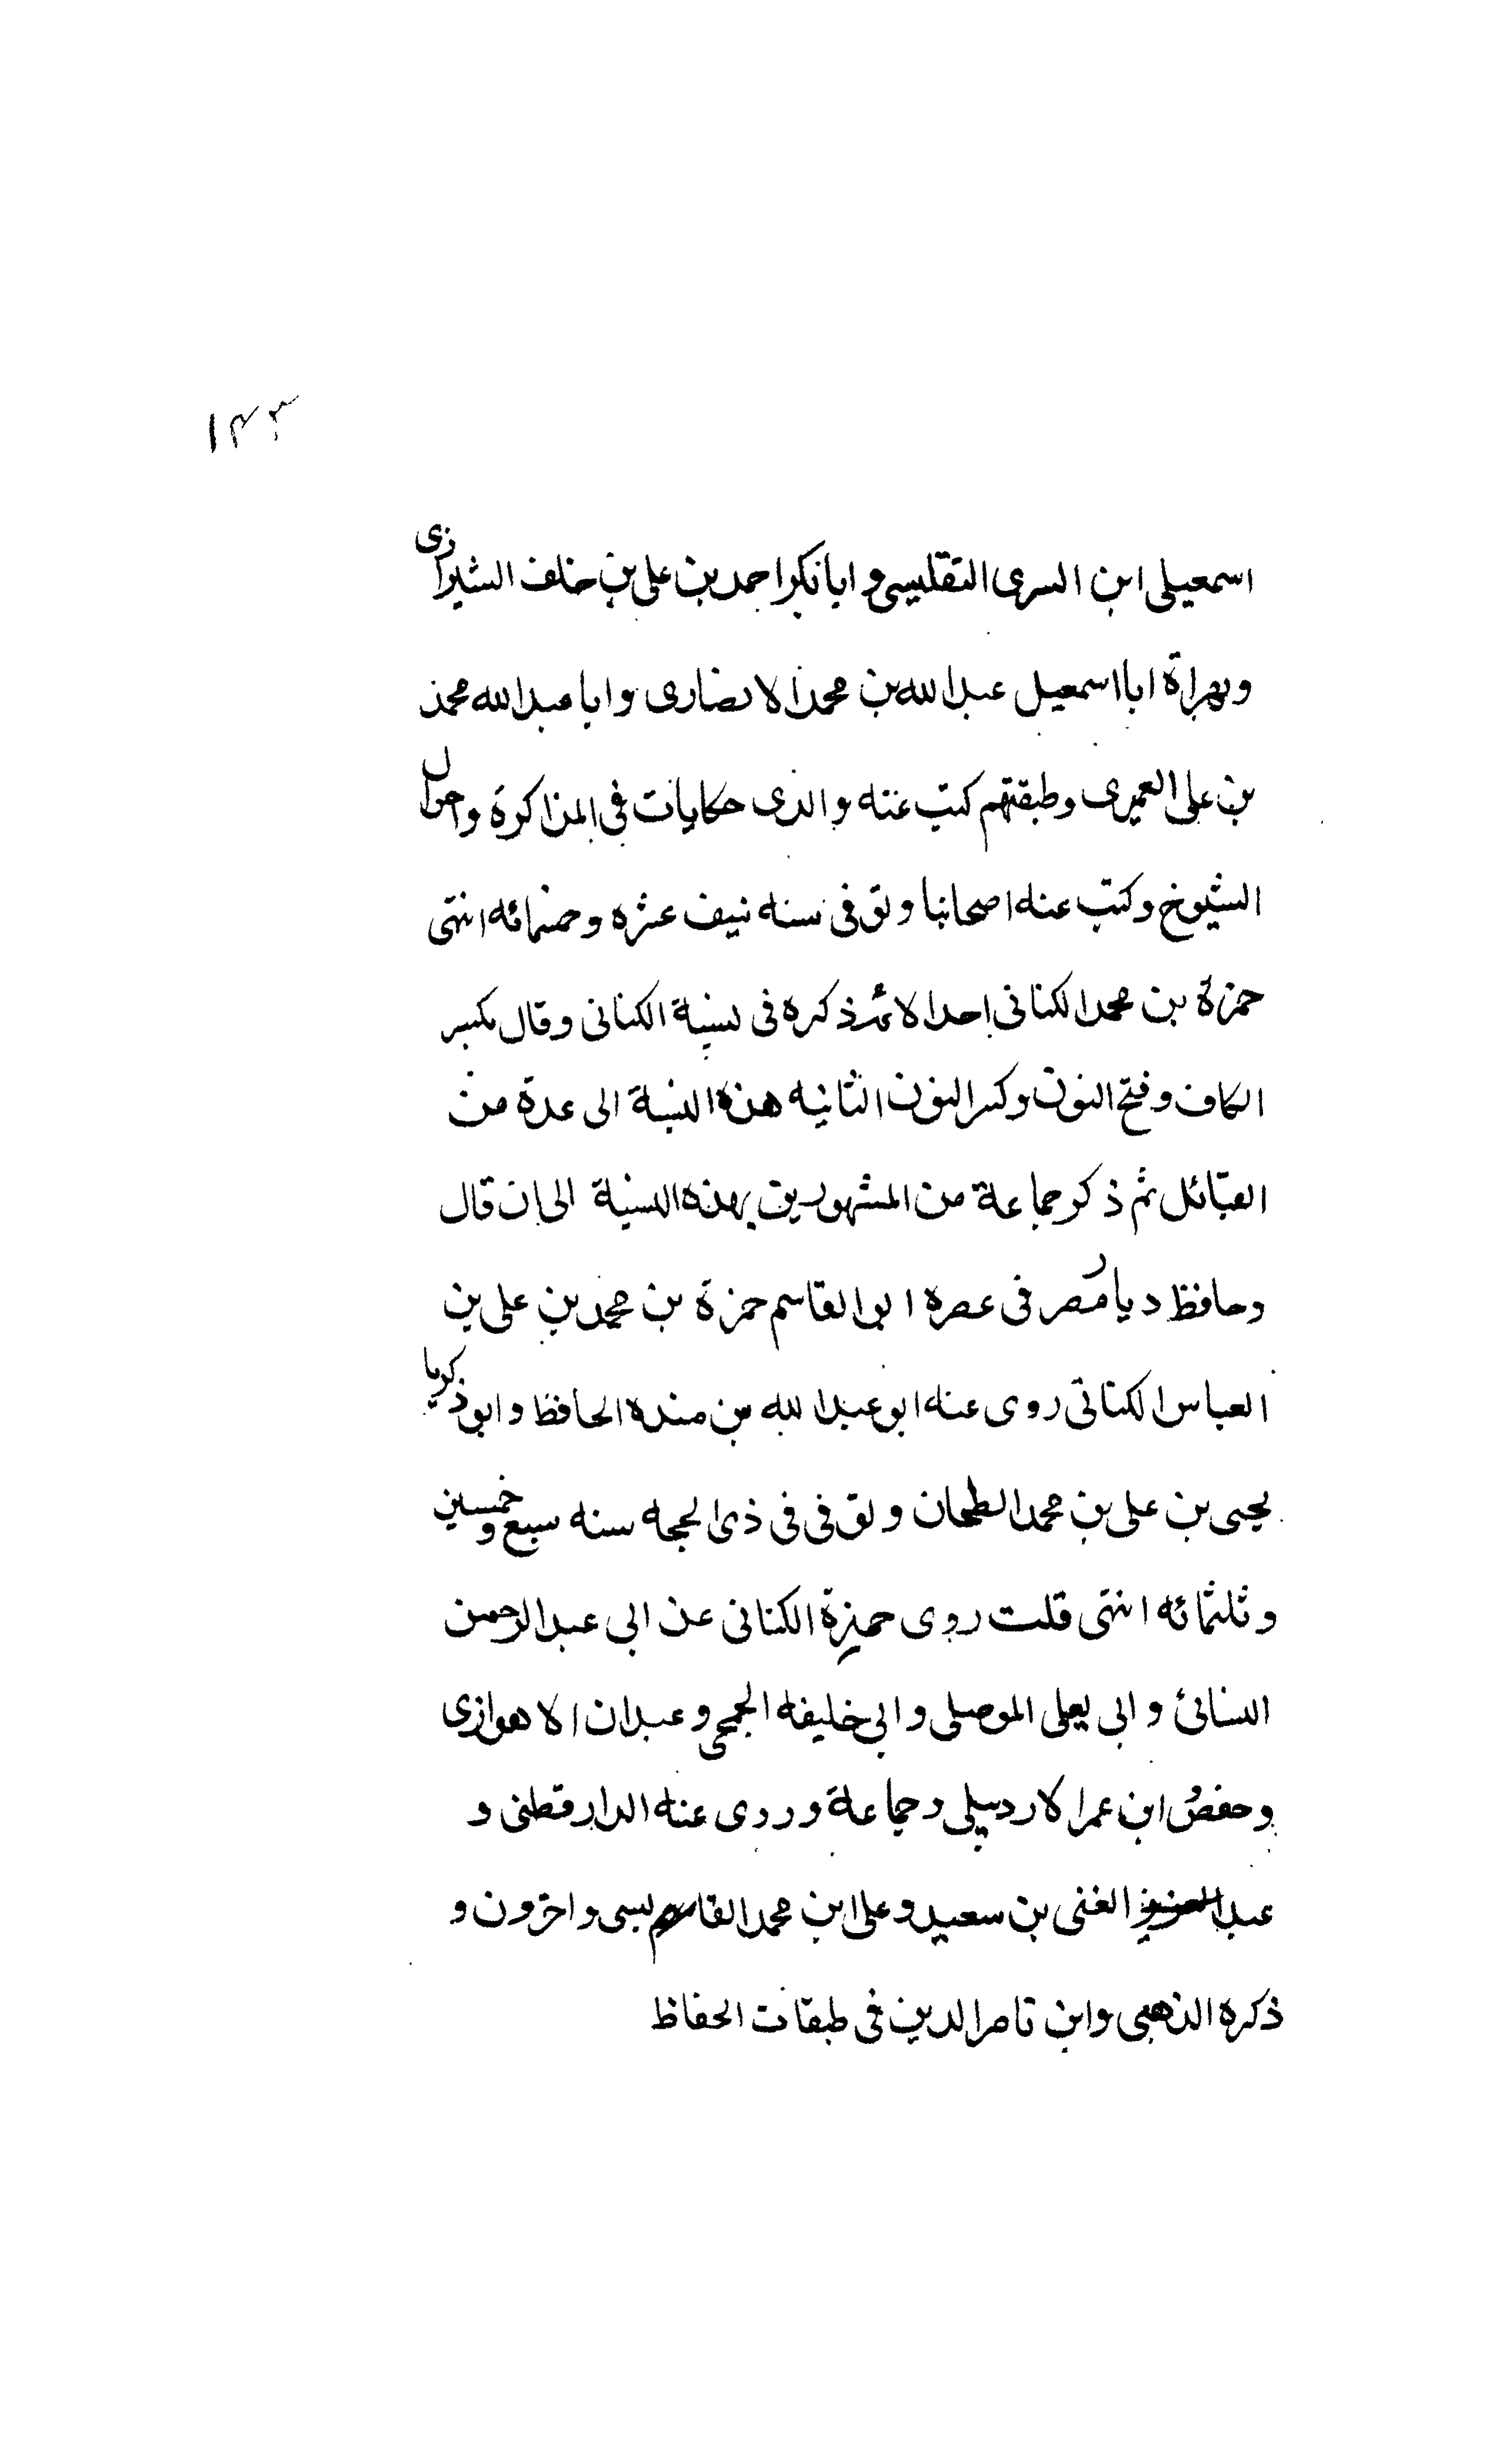 ١٤٣
اسمعيلى ابن السرى التفليسى و ابا بكر احمد بن على بن خلف الشيرازى
وبهراة ابا اسمعيل عبدالله بن محمد الانصارى وابا عبدالله محمد
بن على العميرى وطبقتهم كتب عنه والدى حكايات فى المذاكرة واحوال
الشيوخ وكتب عنه اصحابنا وتوفى سنه نيف عشره وخمسمائه انتهى
حمزة بن محمد الكنانى احد الائمة ذكره فى نسبة الكنانى وقال بكسر
الكاف وفتح النون وكسر النون الثانيه هذه النسبة الى عدة من
القبائل ثم ذكر جماعة من المشهورين بهذه النسبة الى ان قال
وحافظ ديار مصر فى عصره ابو القاسم حمزة بن محمد بن على بن
العباس الكنانى روى عنه ابو عبدالله بن منده الحافظ وابو ذكريا
يحيى بن على بن محمد الطحان وتوفى فى ذى الحجه سنه سبع وخمسين
وثلثمائه انتهى قلت روى حمزة الكنانى عن ابى عبد الرحمن
النسائى و ابى يعلى الموصلى و ابى خليفه الجمحى و عبدان الاهوازى
وحفص ابن عمر الاردبيلى وجماعة وروى عنه الدارقطنى و
عبد الغنى بن سعيد وعلى ابن محمد القابسى واخرون و
ذكره الذهبى وابن ناصر الدين فى طبقات الحفاظ